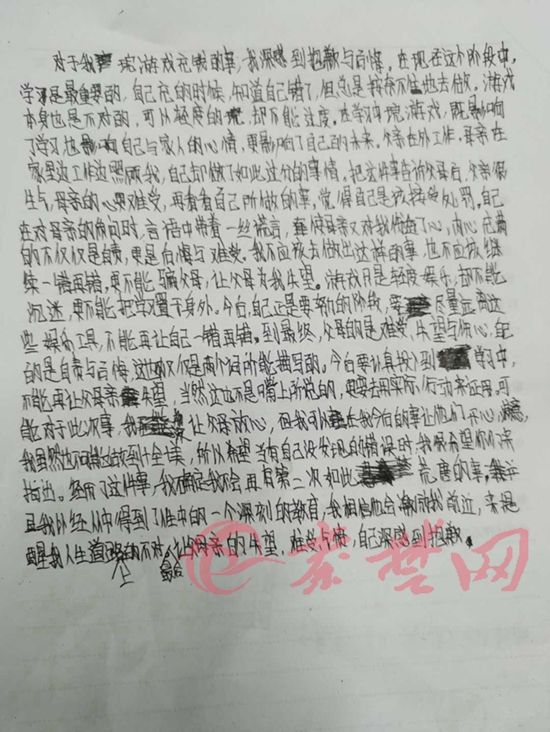 对于我玩游戏充钱的事,我深感到抱歉与后悔,在现在这个阶段中,
学习是最重要的,自己充的时候,知道自己错了,但总是我奈不住地去做。游戏
本身也是不对的,可以轻度的玩,却不能过度。在学习中玩游戏,既影响
了学习也影响自己与家人的心情,更影响了自己的未来。父亲在外工作,母亲在
家里边工作边照顾我,自己却做了如此过分的事情。把这件事告诉父母后,父亲很
生气,母亲的心里难受,再看看自己所做的事,觉得自己是该接受处罚。自己
在对母亲的询问时,言语中带着一丝谎言,母亲又对我伤了心,内心充满
的不仅仅是自责,更是后悔与难受。我不应该去做出这样的事,也不应该继
续一错再错,更不能骗父母,让父母为我失望。游戏只是轻度娱乐,却不能
沉迷,更不能把学习置于身外。今后,自己正是要努力的阶段,尽量远离这
些娱乐工具,不能再让自己一错再错。到最终,父母的是难受,失望与伤心,自己
的是自责与后悔,这也不仅仅是两个词所能描写的。今后要认真投入到学习中,
不能再让父母亲失望,当然这也不是嘴上所说的,更要去用实际行动来证明。可
能对于此次事,我让父母放心,但我可以在我今后的事让他们开心,
我虽然也不能做到十全十美,所以希望当有自己没发现的错误时,我很希望你们深
指出。经历了这件事,我确定我不会再有第二次如此荒唐的事,我并
且我已经从中得到了人生中的一个深刻的教育,我相信他会激励我前进,来
更是我人生道路上的不对,最后让母亲的失望,难受与悔,自己深感到抱歉。
秦楚网